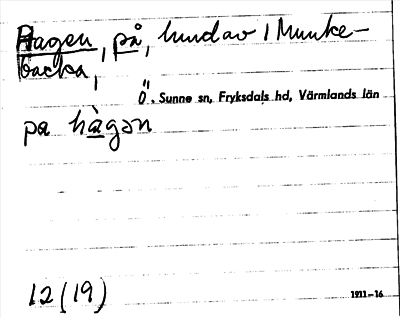 Hagen, på, hund av 1 Munke-
backa,
Ö. Sunne sn, Fryksdals hd, Värmlands län
pa hagən
12 (19)
1911-16